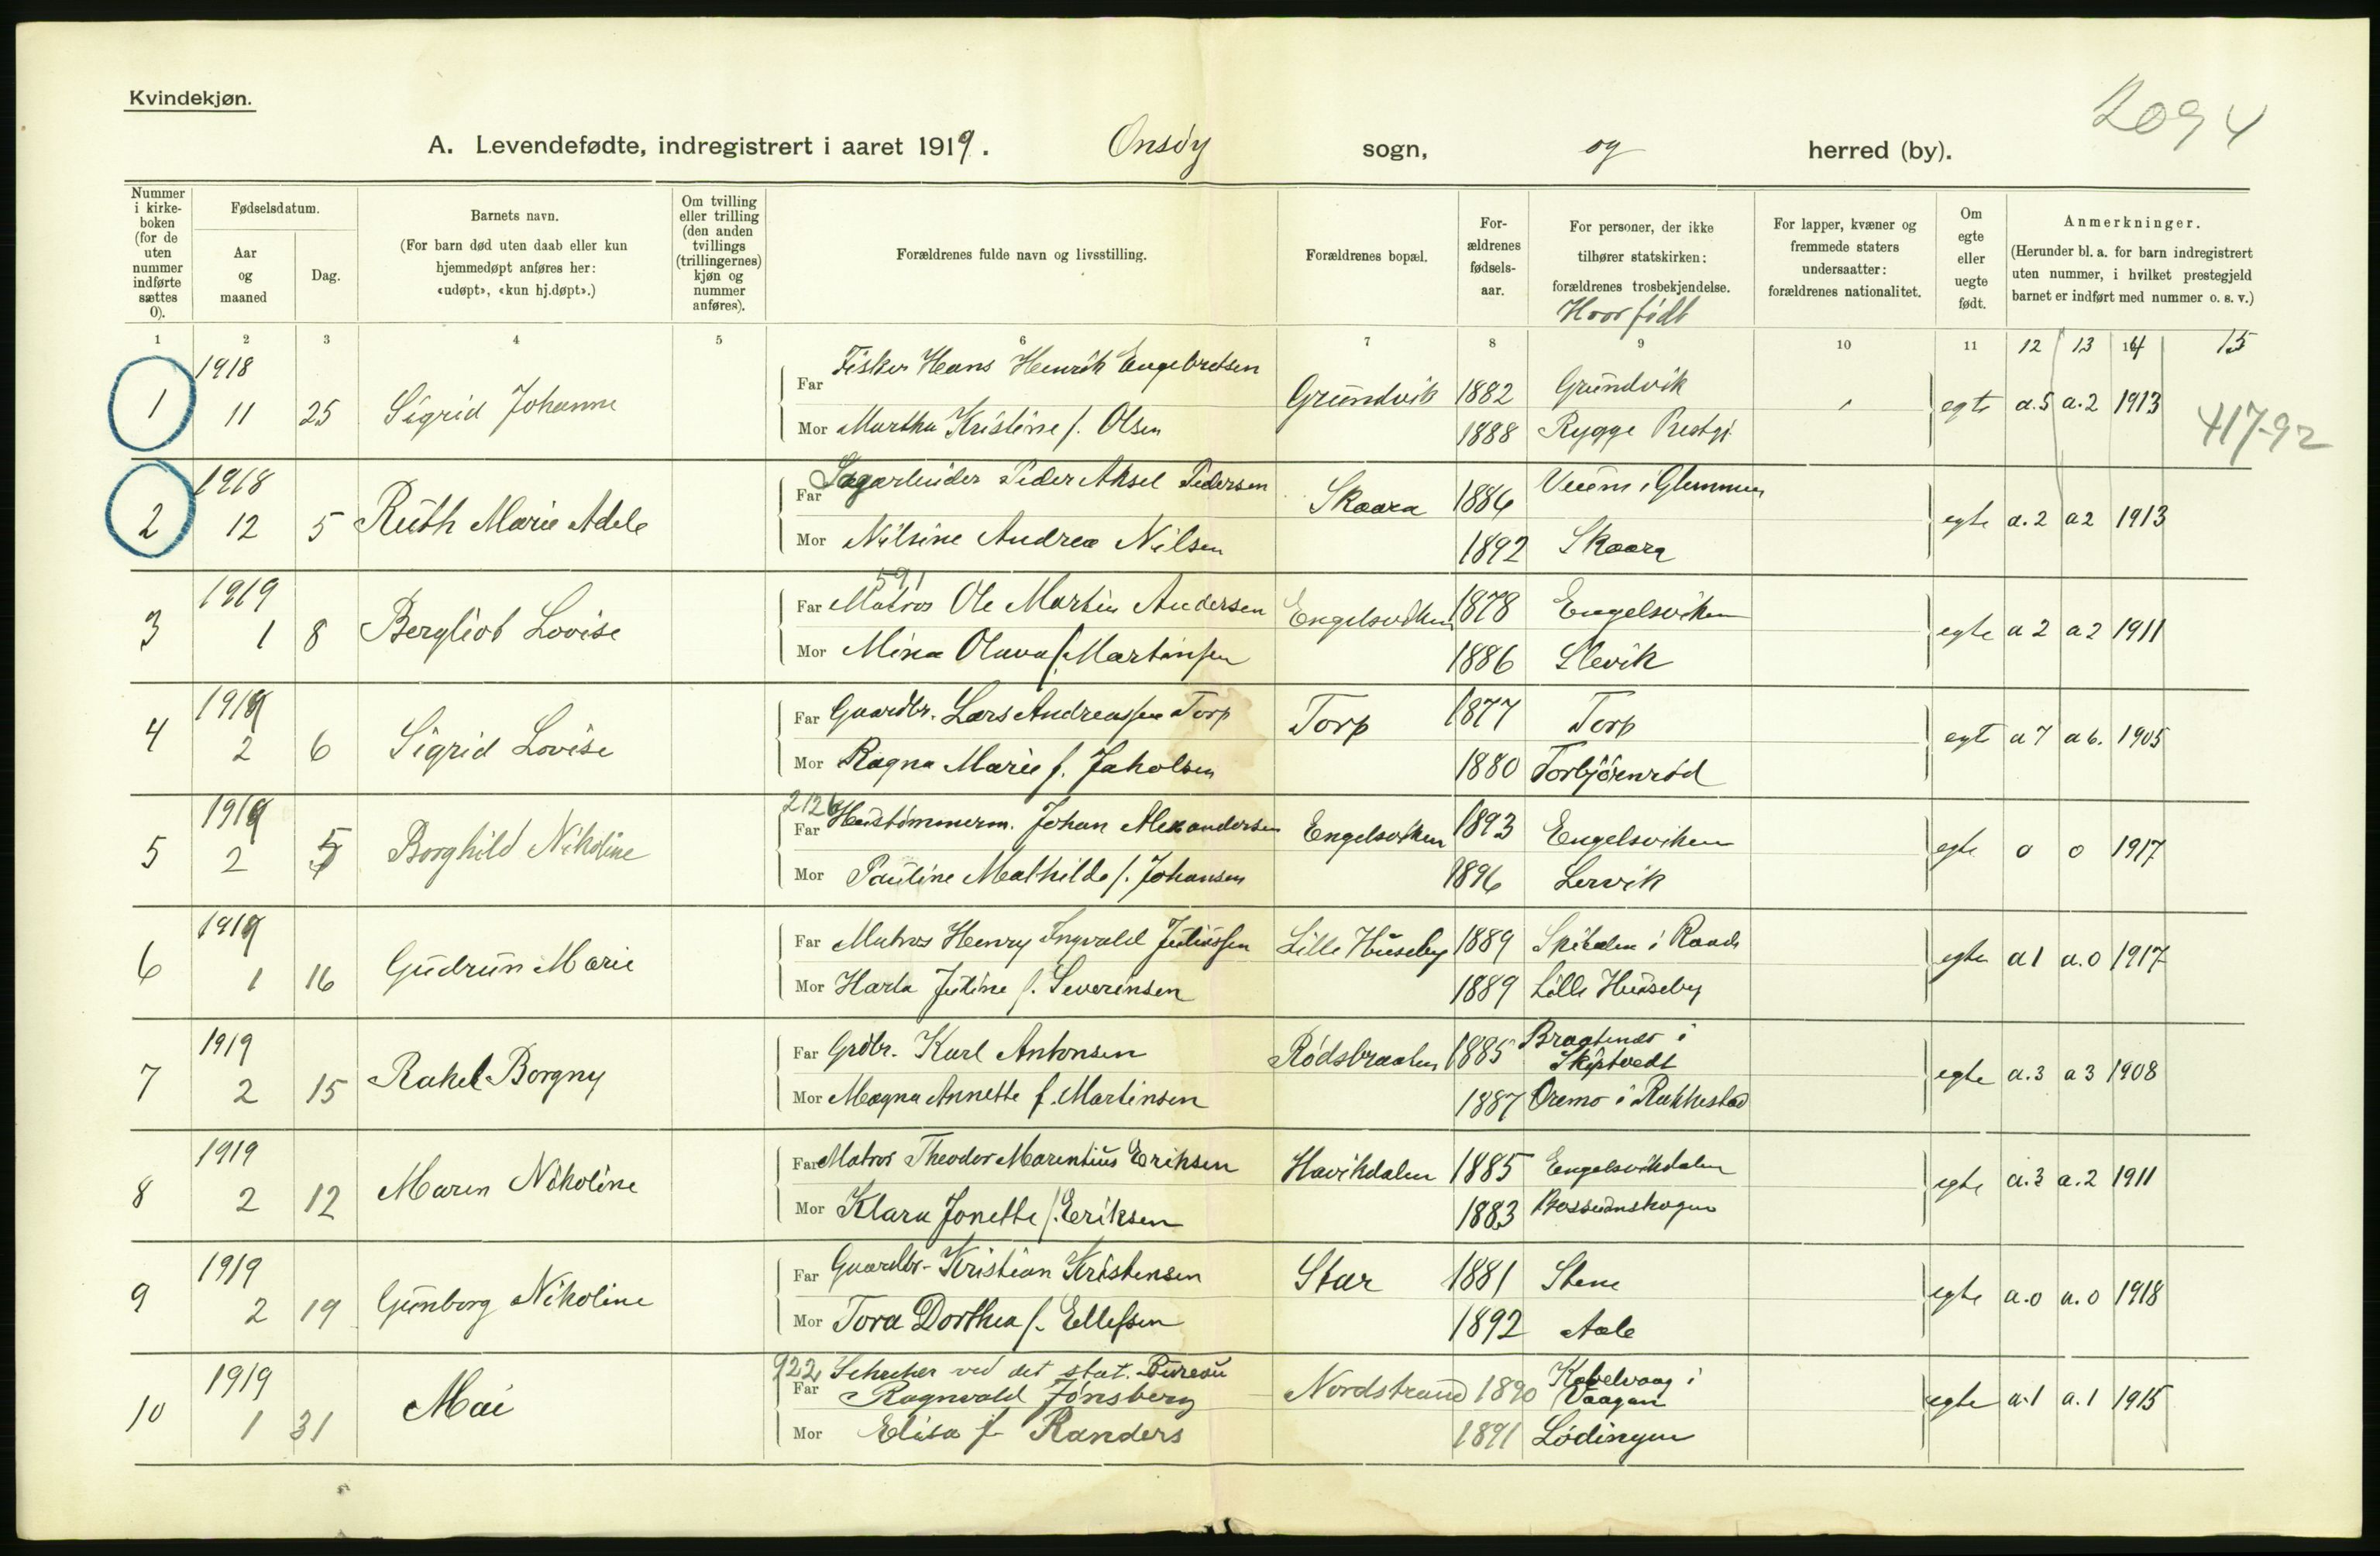 Kvindekjøn.
2094
A. Levendefødte, indregistrert i aaret 1919. Onsöy sogn, og herred (by).
Nummer i kirke-boken (for de uten nummer indførte sættes 0).
Fødselsdatum.
Aar og maaned
Dag.
Barnets navn.
(For barn død uten daab eller kun hjemmedøpt anføres her: «udøpt», «kun hj.døpt».)
Om tvilling eller trilling (den anden tvillings (trillingernes) kjøn og nummer anføres).
Forældrenes fulde navn og livsstilling.
Forældrenes bopæl.
For-ældrenes fødsels-aar.
For personer, der ikke tilhører statskirken: forældrenes trosbekjendelse.
Hvor födt
For lapper, kvæner og fremmede staters undersaatter: forældrenes nationalitet.
Om egte eller uegte født.
Anmerkninger.
(Herunder bl. a. for barn indregistrert uten nummer, i hvilket prestegjeld barnet er indført med nummer o. s. v.)
1 2 3 4 5 6 7 8 9 10 11 12 13 14 15
1 1918 11 25 Sigrid Johanne
Far Fisker Hans Henrik Engebretsen Grundvik 1882 Grundvik
Mor Martha Kristine f. Olsen 1888 Rygge Prestgj.
egte a.5 a.2 1913 417-92
2 1918 12 5 Ruth Marie Adele
Far Sagarbeider Peder Aksel Pedersen Skaara 1886 Veum i Glemmen
Mor Nilsine Andrea Nilsen 1892 Skaara
egte a.2 a2 1913
3 1919 1 8 Bergliot Lovise
591
Far Matros Ole Martin Andersen Engelsviken 1878 Engelsviken
Mor Mina Olava f. Martinsen 1886 Slevik
egte a 2 a 2 1911
4 1919 2 6 Sigrid Lovise
Far Gaardbr. Lars Andreassen Torp Torp 1877 Torp
Mor Ragna Marie f. Jakobsen 1880 Torbjörnröd
egte a 7 a 6. 1905
5 1919 2 5 Borghild Nikoline
2126
Far Hustömmerm. Johan Alexandersen Engelsviken 1893 Engelsviken
Mor Pauline Mathilde f. Johansen 1896 Lervik
egte o o 1917
6 1919 1 16 Gudrun Marie
Far Matros Henry Ingvald Juliussen Lille Huseby 1889 i Raade
Mor Harla Jutine f. Severinsen 1889 Lille Huseby
egte a 1 a.0 1917
7 1919 2 15 Rakel Borgny
Far Grdbr. Karl Antonsen Rödsbraaten 1885 Bragtenæs i Skiptvedt
Mor Magna Annette f. Martinsen 1887 Oremo i Rakkestad
egte a.3 a 3 1908
8 1919 2 12 Maren Nikoline
Far Matros Theodor Marentius Eriksen Havikdalen 1885 Engelsvikdalen
Mor Klara Jonette f. Eriksen 1883
egte a.3 a.2 1911
9 1919 2 19 Gunborg Nikoline
Far Gaardbr. Kristian Kristensen Star 1881 Stene
Mor Tora Dorthea f. Ellefsen 1892 Aale
egte a.0 a.0 1918
10 1919 1 31 Mai
922 Sekretær ved det stat. Bureau
Far Ragnvald Jönsberg Nordstrand 1890 Kabelvaag i Vaagan
Mor Elisa f. Randers 1891 Lödingen
egte a.1 a.1 1915